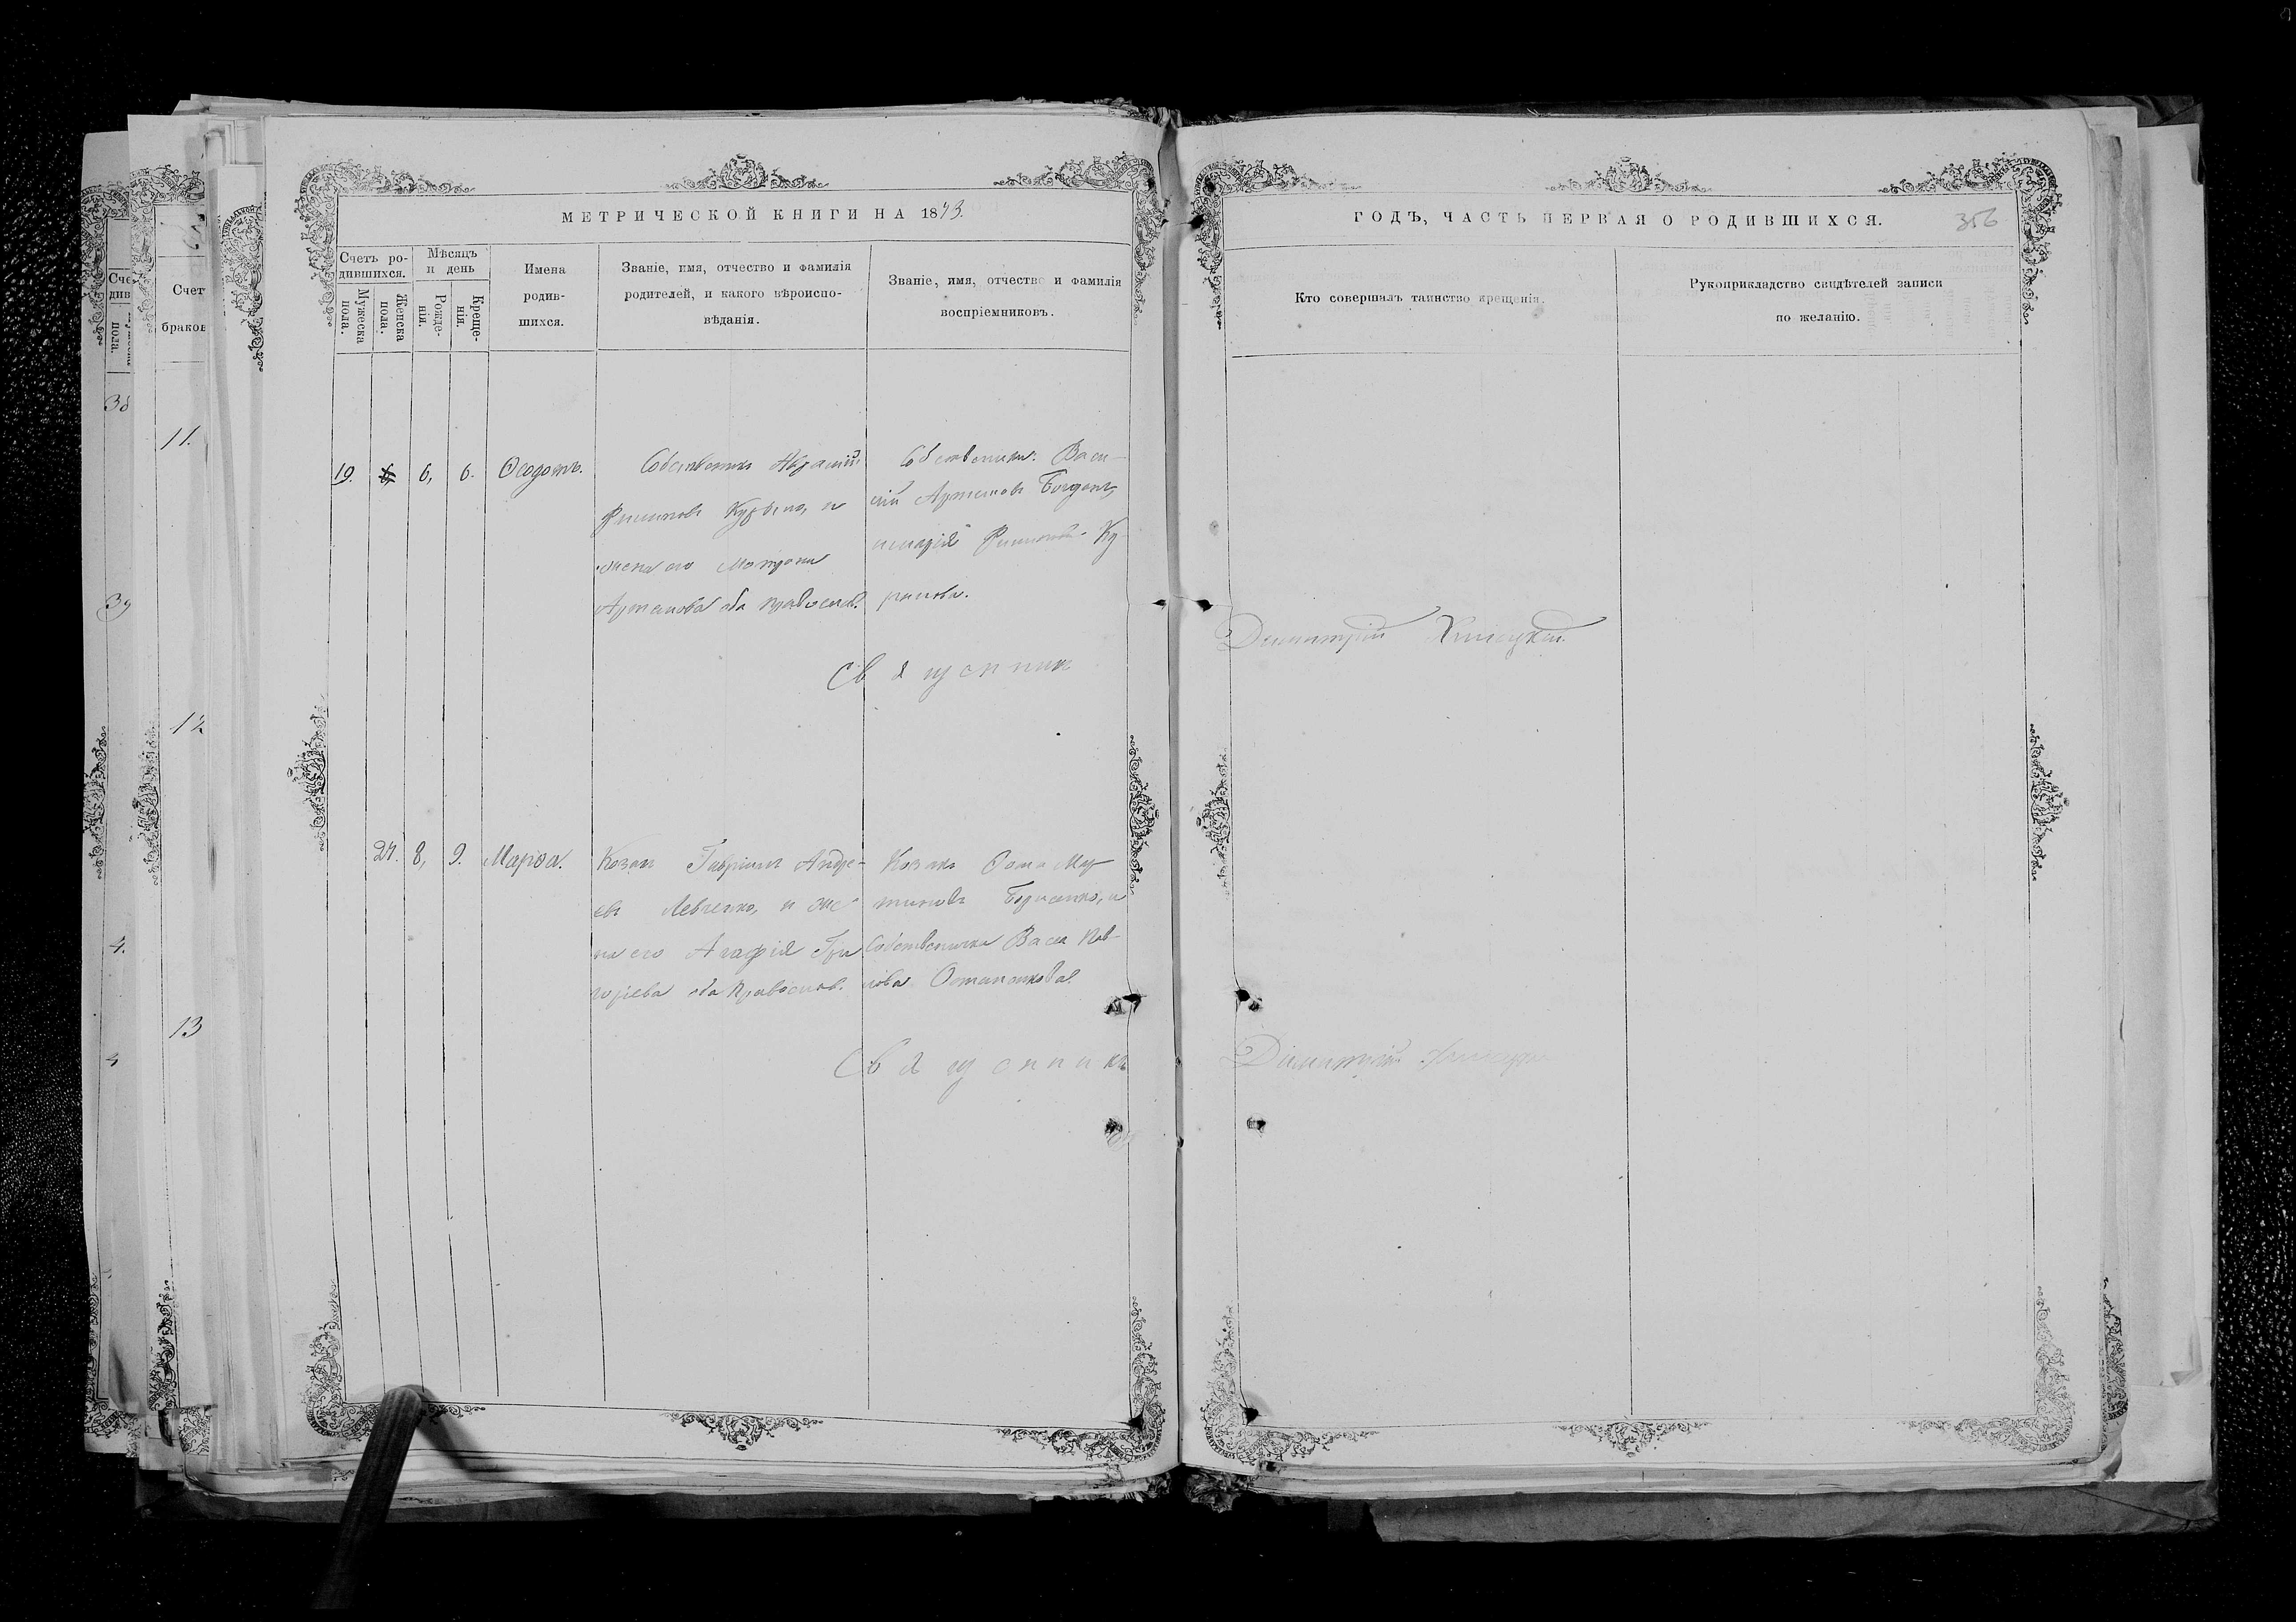 МЕТРИЧЕСКОЙ КНИГИ НА 1873.
Счетъ ро-
дившихся.
Мужеска пола.
Женска пола.
Мѣсяцъ
и день
Рожде-
нія.
Креще-
нія.
Имена
родив-
шихся.
Званіе, имя, отчество и фамилія
родителей, и какого вѣроиспо-
вѣданія.
Званіе, имя, отчество и фамилія
воспріемниковъ.
19. 6, 6. Ѳеодотъ.
Собственникъ
Филиповъ и
жена его
Артемова оба православ.
Собственники: Васи-
лій Артемовъ
Священникъ
24. 8, 9. Марѳа.
Козакъ Гавріилъ Андре-
евъ Левченко, и же-
на его Агафія Гри
горіева оба Православ.
Козакъ Ѳома Мар
тиновъ и
Собственница Васса Пав-
лова Остапенкова
Священникъ
ГОДЪ, ЧАСТЬ ПЕРВАЯ О РОДИВШИХСЯ.
356
Кто совершалъ таинство крещенія.
Рукоприкладство свидѣтелей записи
по желанію.
Димитрій
Димитрій
Сче
див
пола.
38
39
4.
Счет
браков
11.
12
13